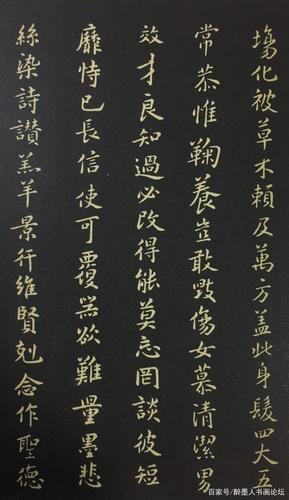 塲化被草木賴及萬方盖此身髮四大五
常恭惟鞠養豈敢毀傷女慕清潔男
效才良知過必改得能莫忘罔談彼短
靡恃已長信使可覆器欲難量墨悲
絲染詩讚羔羊景行維賢剋念作聖德
百家号/醉墨人书画论坛